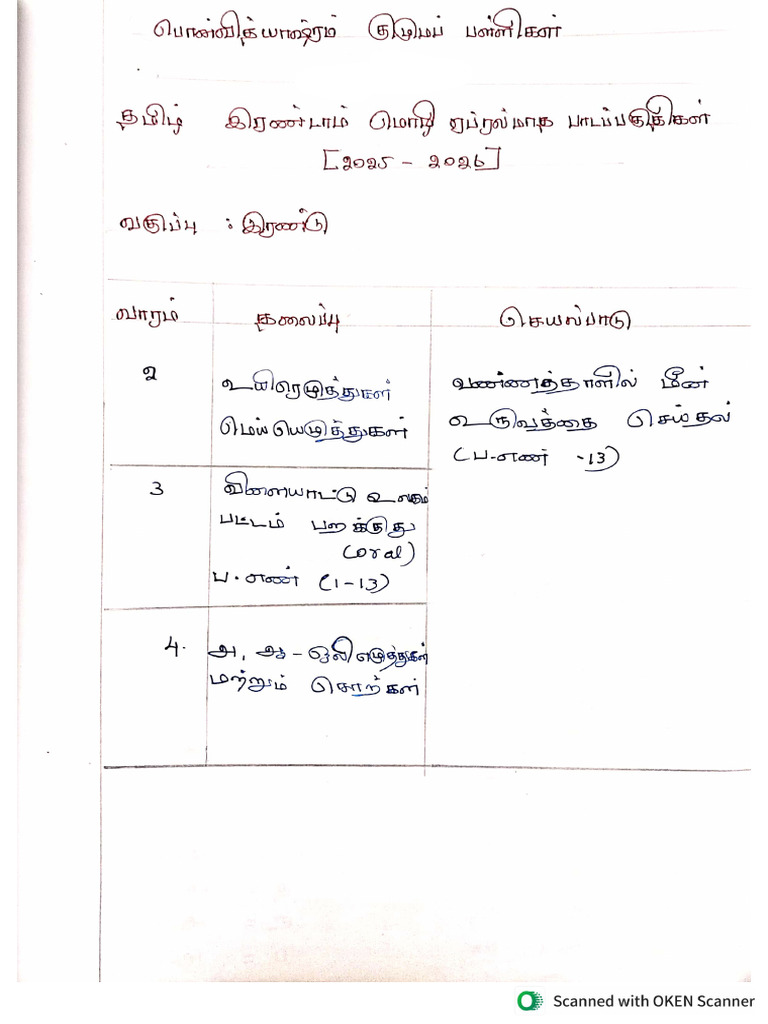 பொன்வித்யாஷ்ரம் குழுமப் பள்ளிகள்
தமிழ் இரண்டாம் மொழி ஏப்ரல்மாத பாடப்பகுதிகள்
[2025 - 2026]
வகுப்பு : இரண்டு
வாரம் தலைப்பு செயல்பாடு
2 உயிரெழுத்துகள் வண்ணத்தாளில் மீன்
மெய்யெழுத்துகள் உருவத்தை செய்தல்
(ப.எண் -13)
3 விளையாட்டு உலகம்
பட்டம் பறக்குது
(oral)
ப.எண் (1-13)
4. அ, ஆ - ஒலி எழுத்துகள்
மற்றும் சொற்கள்
Scanned with OKEN Scanner